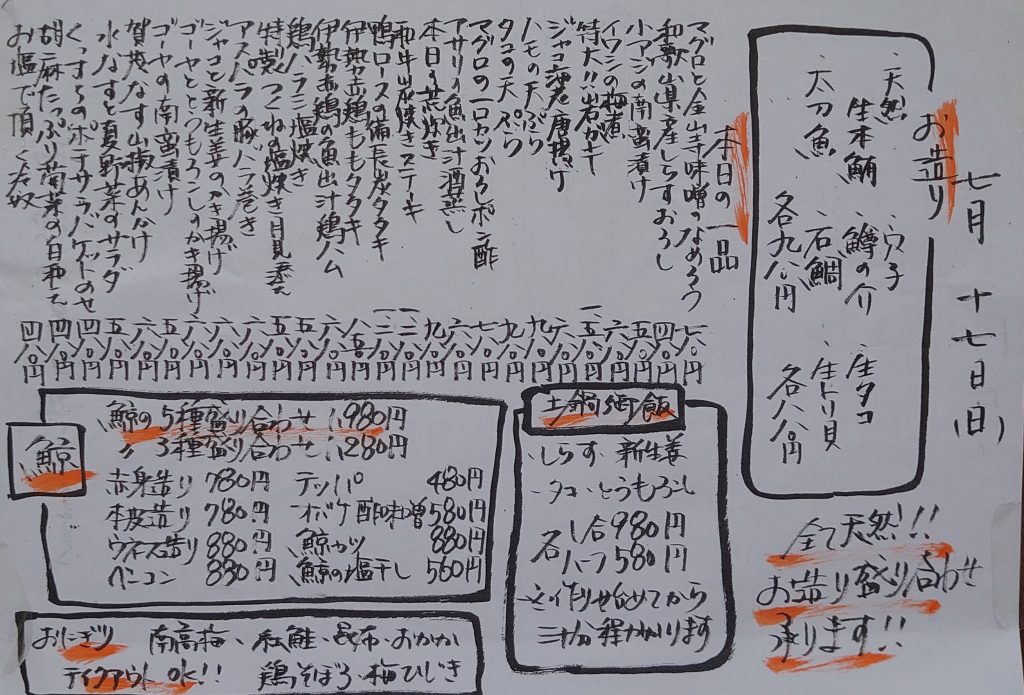 七月十七日(日)
お造り
、天然生本鮪 、穴子 、生タコ
、鱒の介
、太刀魚 、石鯛 、生トリ貝
各九八〇円 各八八〇円
本日の一品
マグロと金山寺味噌のなめろう
和歌山県産しらすおろし
小アジの南蛮漬け
イワシの梅煮
特大!!岩ガキ
ジャコ海老唐揚げ
ハモの天ぷら
タコの天ぷら
マグロの一口カツおろしポン酢
アサリの魚出汁酒蒸し
本日の煮炊き
和牛炭焼きステーキ
鴨ロースの備長炭タタキ
伊勢赤鶏ももタタキ
伊勢赤鶏の魚出汁鶏ハム
鶏ハラミ塩焼き
特製つくねの塩焼き月見添え
アスパラの豚バラ巻き
ジャコと新生姜のかき揚げ
ゴーヤととうもろこしのかき揚げ
ゴーヤの南蛮漬け
賀茂なす山椒あんかけ
水なすと夏野菜のサラダ
ポテサラバケットのせ
胡麻たっぷり青菜の白和え
お塩で頂く冷奴
七八〇円
四八〇円
五八〇円
六八〇円
一、五八〇円
六八〇円
九八〇円
九八〇円
七八〇円
六八〇円
九八〇円
一、二八〇円
一、二八〇円
六八〇円
五八〇円
六八〇円
六八〇円
五八〇円
六八〇円
五八〇円
四八〇円
四八〇円
四八〇円
全て天然!!
お造り盛り合わせ
承ります!!
土鍋御飯
・しらす・新生姜
・タコ・とうもろこし
各 1合980円
ハーフ580円
※作り始めてから
三十分程かかります
鯨
鯨の5種盛り合わせ 1,980円
〃 3種盛り合わせ 1,280円
赤身造り 780円 テッパ 480円
本皮造り 780円 オバケ酢味噌 580円
ウネス造り 880円 鯨カツ 880円
ベーコン 880円 鯨の塩干し 560円
おにぎり 南高梅、紅鮭、昆布、おかか
テイクアウト OK!! 鶏そぼろ、梅ひじき